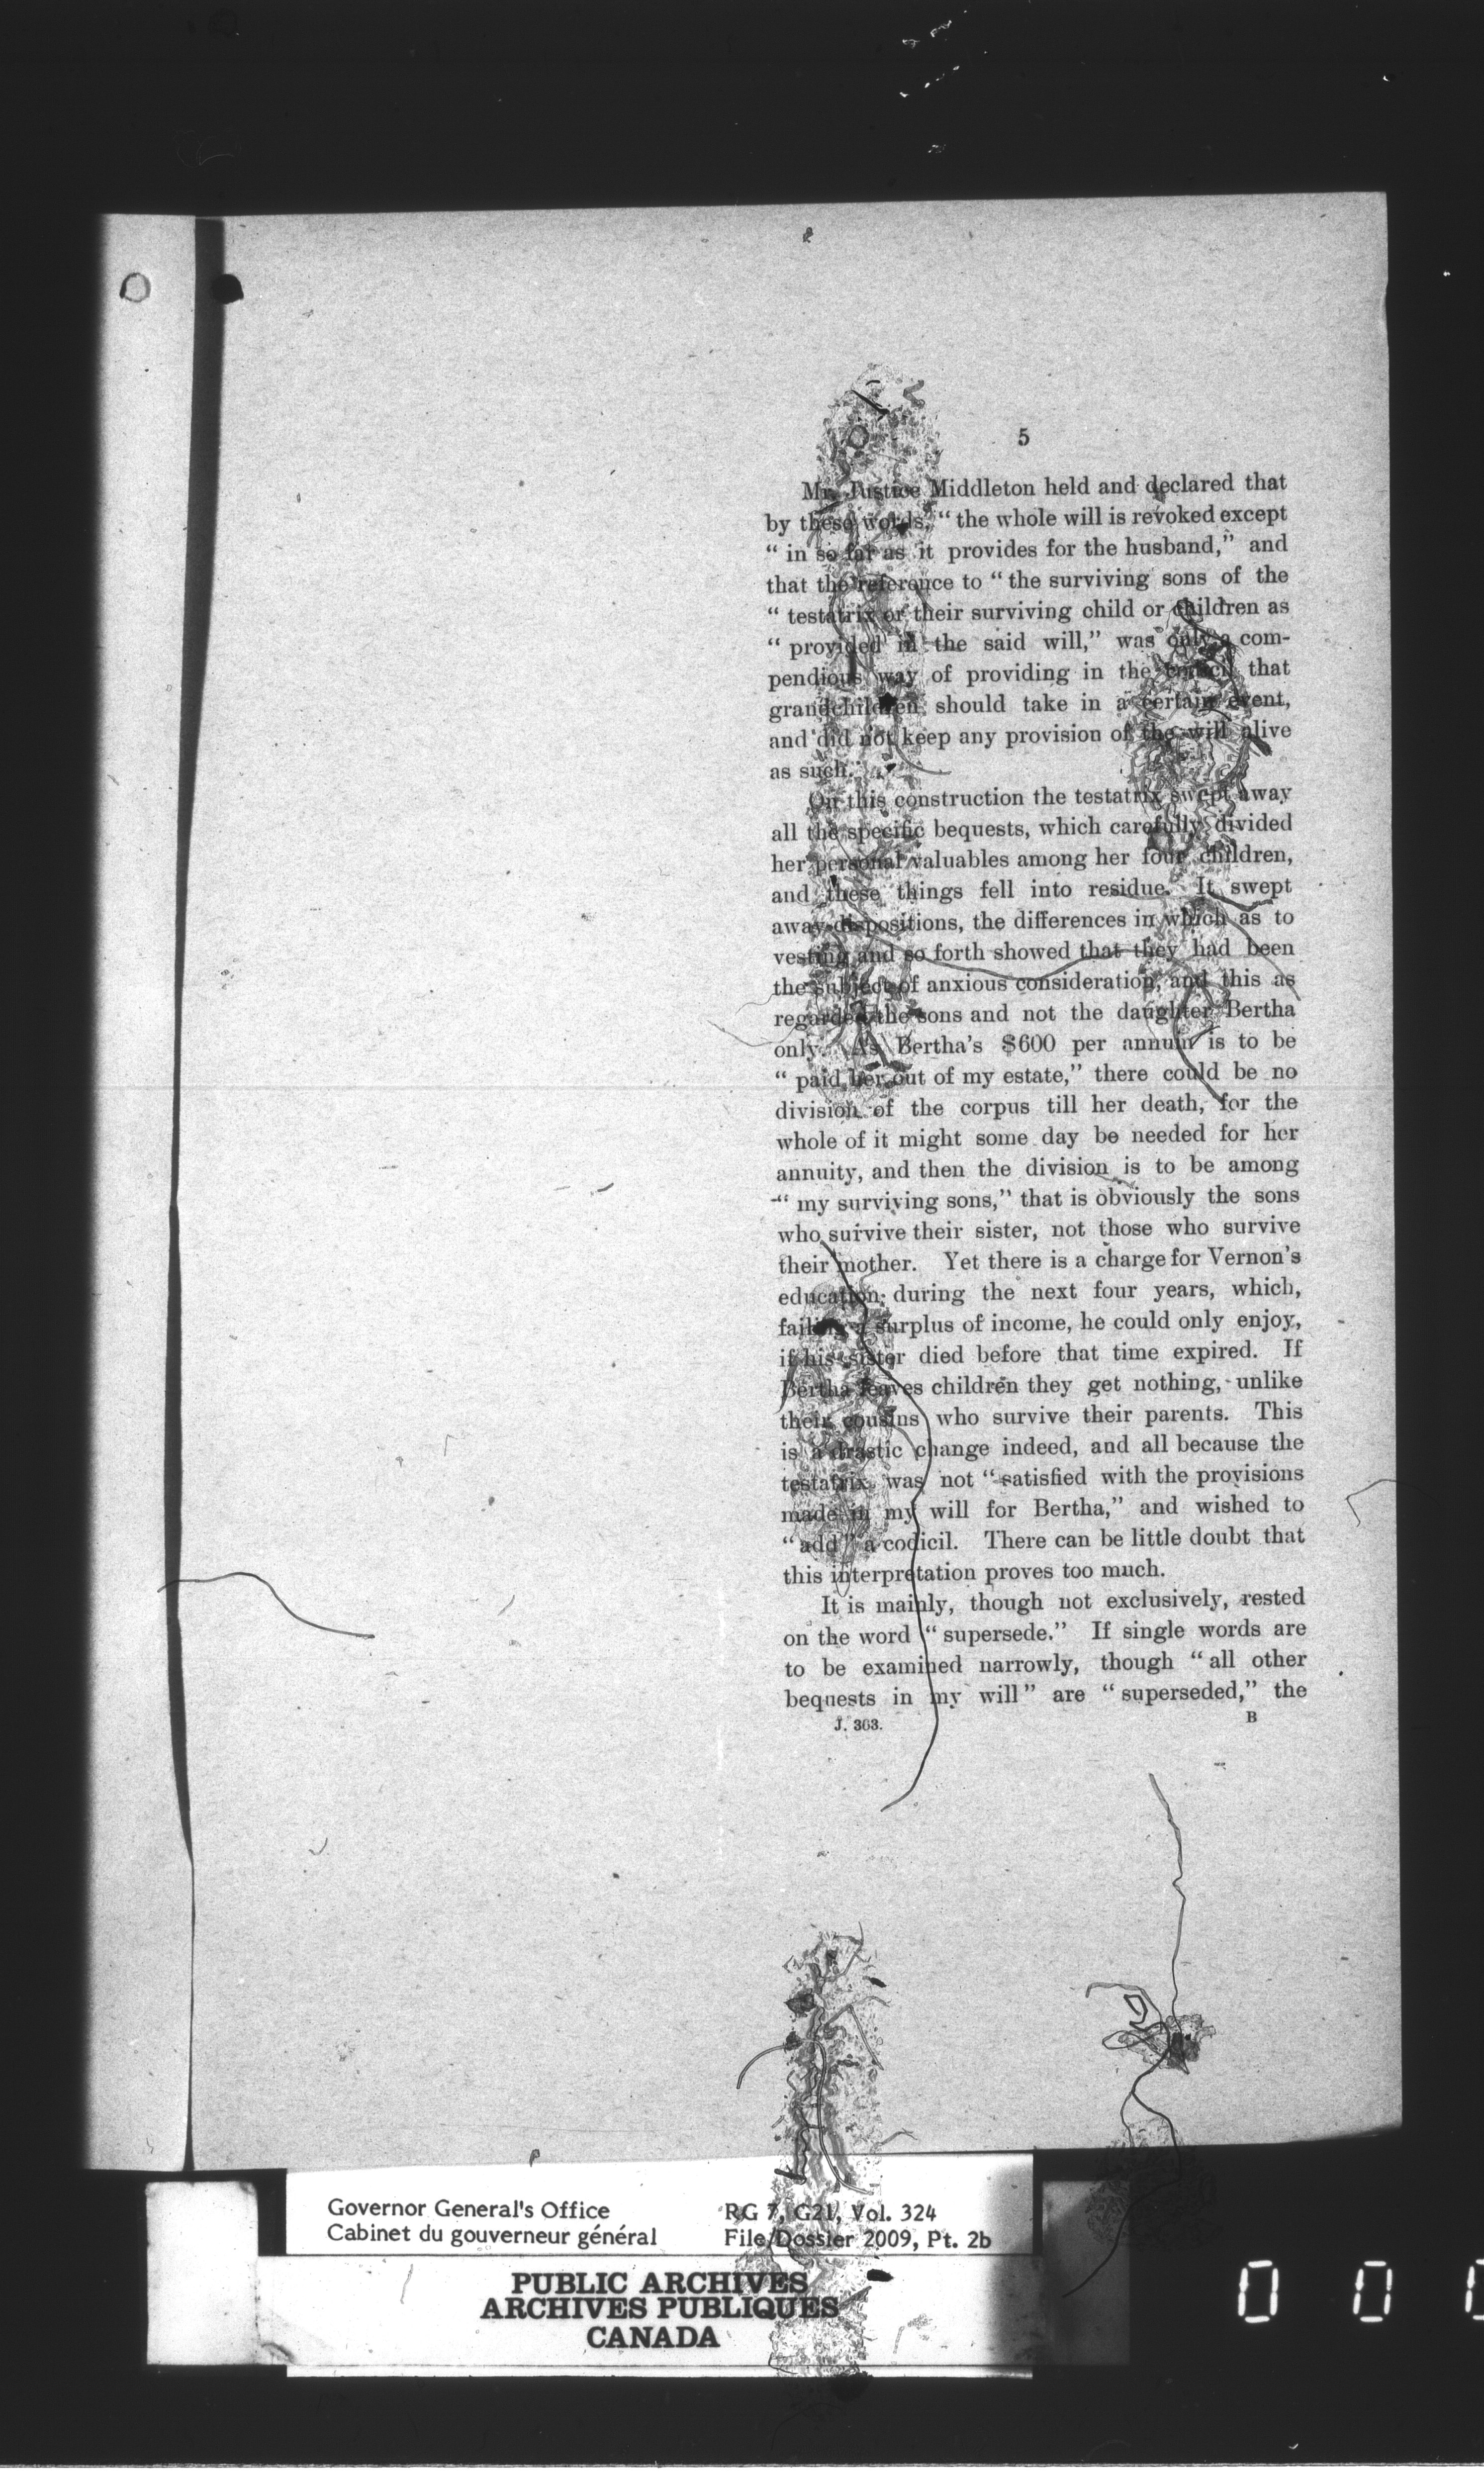 5
Mr. Justice Middleton held and declared that
by these words, “ the whole will is revoked except
“ in so far as it provides for the husband,” and
that the reference to “ the surviving sons of the
“ testatrix or their surviving child or children as
“ provided in the said will,” was only a com-
pendious way of providing in the codicil that
grandchildren should take in a certain event,
and did not keep any provision of the will alive
as such.
On this construction the testatrix swept away
all the specific bequests, which carefully divided
her personal valuables among her four children,
and these things fell into residue. It swept
away dispositions, the differences in which as to
vesting and so forth showed that they had been
the subject of anxious consideration, and this as
regarded the sons and not the daughter Bertha
only. As Bertha’s $600 per annum is to be
“ paid her out of my estate,” there could be no
division of the corpus till her death, for the
whole of it might some day be needed for her
annuity, and then the division is to be among
“ my surviving sons,” that is obviously the sons
who survive their sister, not those who survive
their mother. Yet there is a charge for Vernon’s
education during the next four years, which,
failing a surplus of income, he could only enjoy,
if his sister died before that time expired. If
Bertha leaves children they get nothing, unlike
their cousins who survive their parents. This
is a drastic change indeed, and all because the
testatrix was not “ satisfied with the provisions
made in my will for Bertha,” and wished to
“ add ” a codicil. There can be little doubt that
this interpretation proves too much.
It is mainly, though not exclusively, rested
on the word “ supersede.” If single words are
to be examined narrowly, though “ all other
bequests in my will ” are “ superseded,” the
J. 363. B
Governor General's Office RG 7, G21, Vol. 324
Cabinet du gouverneur général File/Dossier 2009, Pt. 2b
PUBLIC ARCHIVES
ARCHIVES PUBLIQUES
CANADA
0 0